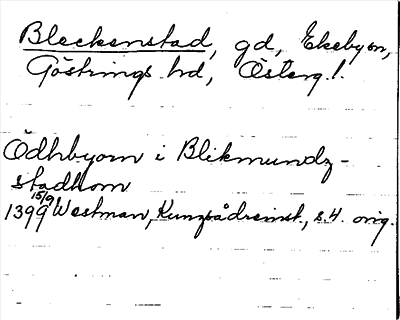 Bleckenstad, gd, Ekebyon,
Göstrings hd, Österg.l.
Ödhbyom i Blikmundz-
stadhom
15/9
1399 Westman, s. 4. orig.